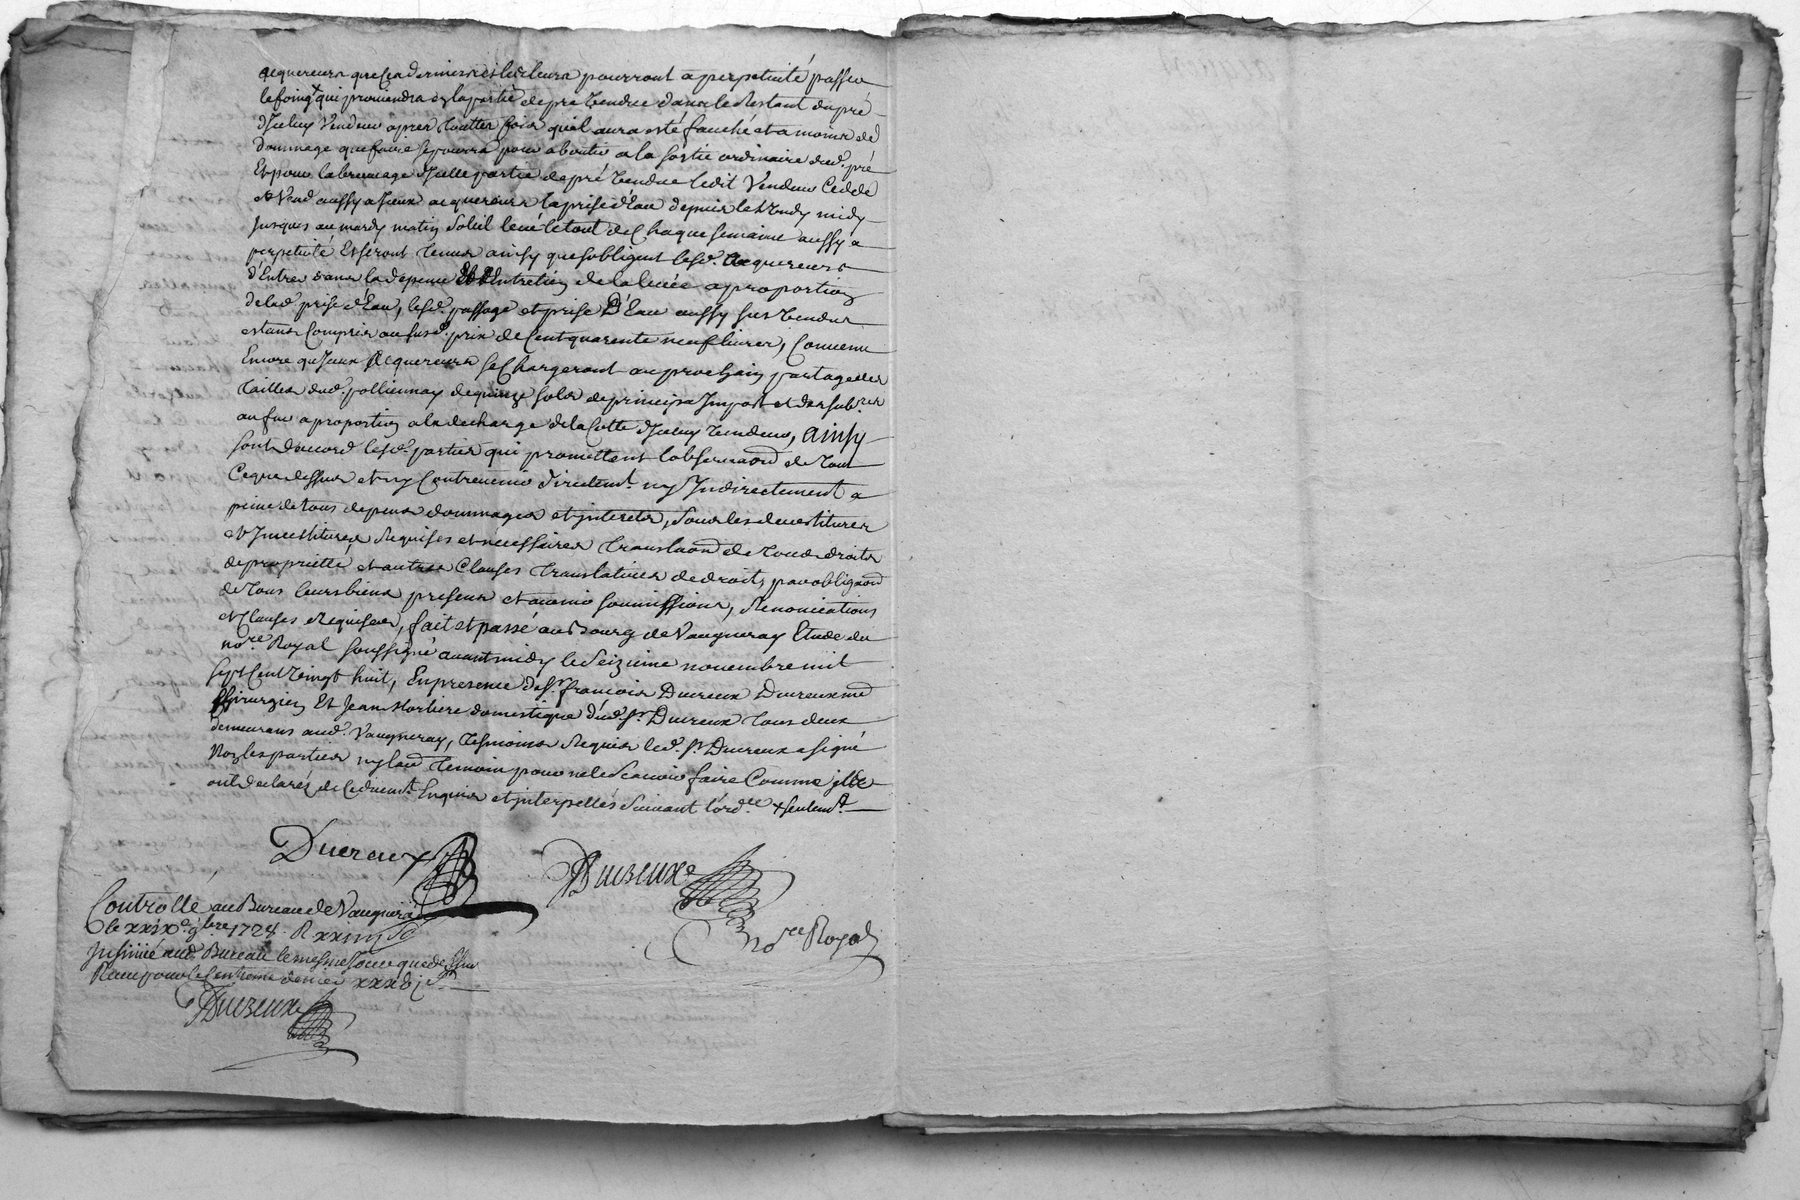 acquereurs que ces derniers et les leurs pourront a perpetuité passer
le foing qui proviendra en la partie de pré vendue dans le restant du pré
d'Iceluy vendeur apres touttes fois qu'il aura esté fauché et a moins de
dommage que faire se pourra pour aboutir a la sortie ordinaire dud. pré
Et pour l'abreuvage d'Icelle partie de pré vendue ledit vendeur Cedde
et vend aussy a Iceux acquereurs la prise d'Eau depuis le Lundy midy
Jusques au mardy matin soleil levé le tout de Chaque semaine aussy a
perpetuité Et seront tenus ainsy que s'obligent lesd. acquereurs
d'Entrer dans la depense Et d'Entretien de la levée a proportion
de lad. prise d'Eau, lesd. passage et prise D'Eau aussy sus vendus
estans Compris au susd. prix de Cent quarente neuf livres, Convenu
Encore qu'Iceux Acquereurs se Chargeront au prochain partage des
tailles dud. pollionnay de quinze sols de principal Impost et des sub.res
au fur a proportion a la decharge de la Cotte d'Iceluy vendeur, Ainsy
sont d'accord lesd. parties qui promettent l'observaon de tout
Ce que dessus et n'y Contrevenir directem.t ny Indirectement a
peine de tous depens dommages et interets, sous les devestitures
et Investitures Requises et necessaires translaon de tous droits
de proprietté et autres Clauses translatives de droits, par obligaon
de tous leurs biens presens et avenir soumissions, Renonciations
et Clauses Requises, fait et passé au Bourg de Vaugneray Etude du
no.re Royal soussigné avant midy le seizieme novembre mil
sept Cent vingt huit, En presence de s.r françois Ducreux Ducreux md
Chirurgien Et Jean Mortiere domestique dud. s.r Ducreux tous deux
demeurans aud. Vaugneray, tesmoins Requis led. s.r Ducreux a signé
Non les parties ny lautre temoin pour ne le Scavoir faire Comme ils
ont declarés de Ce duem.t Enquis et interpellés suivant l'ord.ce + seulem.t
Ducreux
Ducreux
no.re Royal
Controllé au Bureau de Vaugneray
le xxix.e 9bre 1728 R xxiiii s.
Insinué aud. Bureau le mesme Jour que dessus
Receu pour le Centieme denier
Ducreux